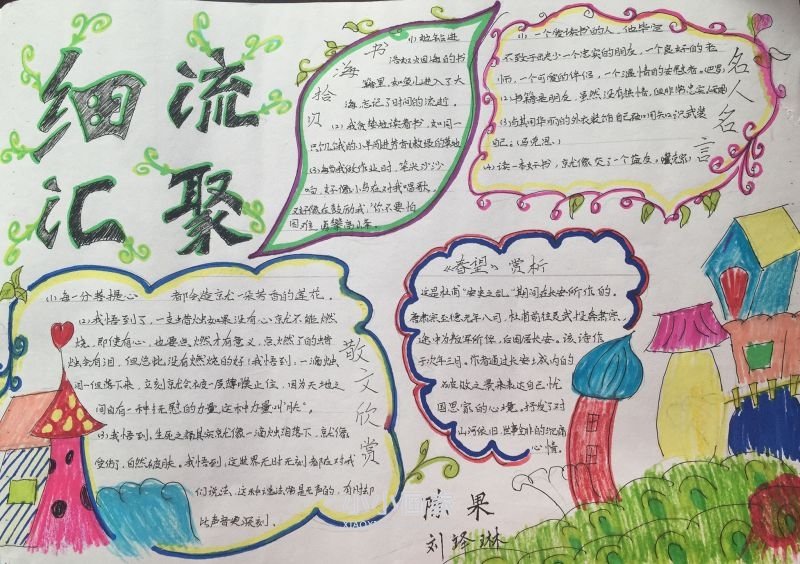 细流
汇聚
书海拾贝
(1)
浩如烟海的书
籍里，如鱼儿进入了大
海，忘记了时间的流逝。
(2)我贪婪地读着书，如同一
只饥饿的小羊闯进芳香嫩绿的草地
(3)每当我做作业时，笔尖沙沙
响，好像小鸟在对我唱歌，
又好像在鼓励我，你不要怕
困难，勇攀高峰。
名人名言
(1)一个爱读书的人，他毕定
不致于缺少一个忠实的朋友，一个良好的老
师，一个可爱的伴侣，一个温情的安慰者。
(2)书籍是朋友，虽然没有热情，但非常忠实
(3)与其用华丽的外衣装饰自己，不如用知识武装
自己。(马克思)
(4)读一本好书，就像交了一个益友。
散文欣赏
(1)每一分菩提心 都会绽就一朵芳香的莲花。
(2)我悟到了，一支蜡烛如果没有心就不能燃
烧，即使有心，也要点燃才有意义，点燃了的蜡
烛会有泪，但总比没有燃烧的好！我悟到，一滴烛
泪一但落下来，立刻就会被一层薄膜止住，因为天地之
间自有一种抚慰的力量，这种力量叫“肤”。
(3)我悟到，生死之椎其实就像一滴烛泪落下，就像
受伤了，自然破肤。我悟到，这世界无时无刻都在对我
们说法，这种说法常是无声的，有时却
比声音更深刻。
《春望》赏析
这是杜甫“安史之乱”期间在长安所作的。
唐肃宗至德元年八月，杜甫前往灵武投奔肃宗，
途中为叛军所俘，白困居长安。该诗作
于次年三月。作者通过长安士城内的
破败之景来表达自己忧
国思家的心境，抒发了对
山河依旧，世事全非的沉痛
心情。
陈果